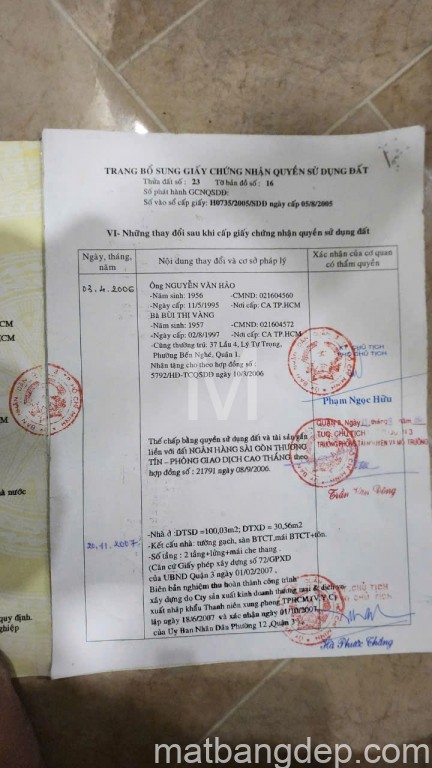 TRANG BỔ SUNG GIẤY CHỨNG NHẬN QUYỀN SỬ DỤNG ĐẤT
Thửa đất số : 23 Tờ bản đồ số : 16
Số phát hành GCNQSDĐ:
Số vào sổ cấp giấy: H0735/2005/SDD ngày cấp 05/8/2005
VI- Những thay đổi sau khi cấp giấy chứng nhận quyền sử dụng đất
Ngày, tháng, năm
Nội dung thay đổi và cơ sở pháp lý
Xác nhận của cơ quan có thẩm quyền
03.4.2006
Ông NGUYỄN VĂN HẢO
-Năm sinh: 1956 -CMND: 021604560
-Ngày cấp: 11/5/1995 -Nơi cấp: CA TP.HCM
Bà BÙI THỊ VÀNG
-Năm sinh: 1957 -CMND: 021604572
-Ngày cấp: 02/8/1997 -Nơi cấp: CA TP.HCM
-Cùng thường trú: 37 Lầu 4, Lý Tự Trọng,
Phường Bến Nghé, Quận 1.
Nhận tặng cho theo hợp đồng số :
5792/HĐ-TCQSDĐ ngày 10/3/2006
PHÓ CHỦ TỊCH
Phạm Ngọc Hữu
Thế chấp bằng quyền sử dụng đất và tài sản gắn
liền với đất NGÂN HÀNG SÀI GÒN THƯƠNG
TÍN – PHÒNG GIAO DỊCH CAO THẮNG theo
hợp đồng số : 21791 ngày 08/9/2006.
QUẬN 3, Ngày
TUQ. CHỦ TỊCH
TRƯỞNG PHÒNG TÀI NGUYÊN VÀ MÔI TRƯỜNG
20.11.2007
-Nhà ở :DTSD =100,03m2; DTXD = 30,56m2
-Kết cấu nhà: tường gạch, sàn BTCT,mái BTCT+tôn.
-Số tầng : 2 tầng+lửng+mái che thang.
(Căn cứ Giấy phép xây dựng số 72/GPXD
của UBND Quận 3 ngày 01/02/2007 .
Biên bản nghiệm thu hoàn thành công trình
xây dựng do Cty sản xuất kinh doanh thương mại & dịch vụ
xuất nhập khẩu Thanh niên xung phong TPHCM (V.Y.C)
lập ngày 18/6/2007 và xác nhận ngày 01/10/2007
của Ủy Ban Nhân Dân Phường 12 ,Quận 3 ).
Hà Phước Thắng
HCM
HCM
hà nước
quy định.
nghiệp
M
matbangdep.com